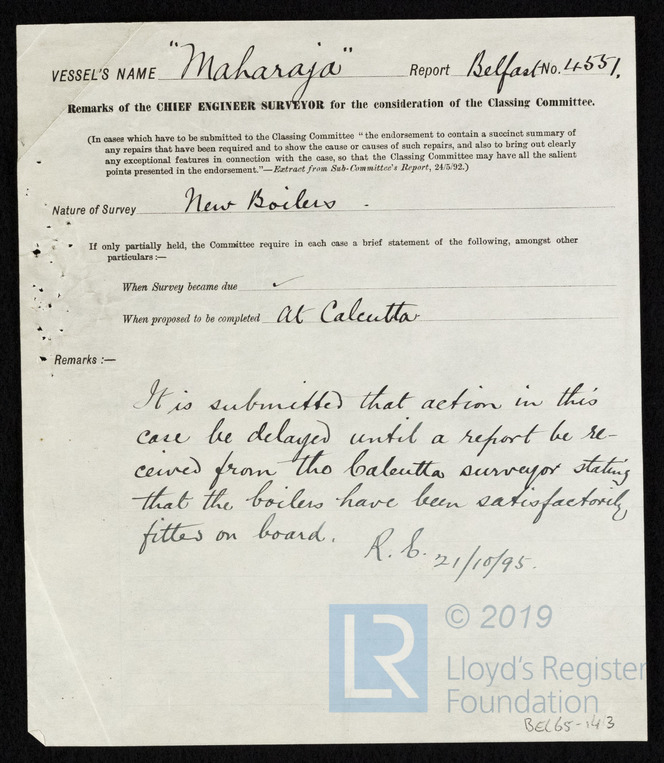 VESSEL'S NAME "Maharaja" Report Belfast No. 4551.
Remarks of the CHIEF ENGINEER SURVEYOR for the consideration of the Classing Committee.
(In cases which have to be submitted to the Classing Committee "the endorsement to contain a succinct summary of
any repairs that have been required and to show the cause or causes of such repairs, and also to bring out clearly
any exceptional features in connection with the case, so that the Classing Committee may have all the salient
points presented in the endorsement."—Extract from Sub-Committee's Report, 24/5/92.)
Nature of Survey New Boilers -
If only partially held, the Committee require in each case a brief statement of the following, amongst other
particulars:—
When Survey became due ✓
When proposed to be completed at Calcutta
Remarks:—
It is submitted that action in this
case be delayed until a report be re-
ceived from the Calcutta surveyor stating
that the boilers have been satisfactorily
fitted on board.
R. E. 21/10/95.
LR
© 2019
Lloyd's Register
Foundation
BEL65-143